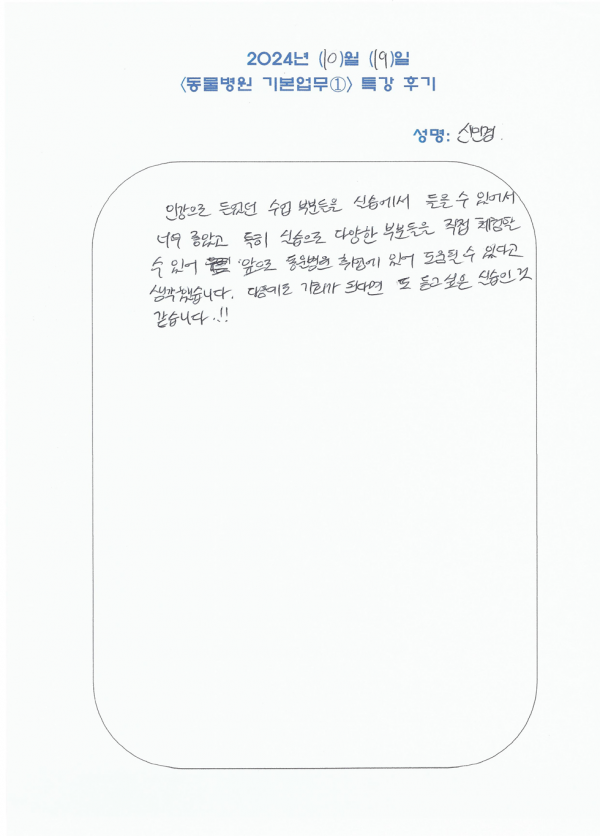 2024년 (10)월 (19)일
<동물병원 기본업무①> 특강 후기
성명: 신민경.
인강으로 듣었던 수업 부분들을 실습에서 들을 수 있어서
너무 좋았고 특히 실습으로 다양한 부분들을 직접 체험할
수 있어 앞으로 동물병원 취업에 있어 도움될 수 있다고
생각했습니다. 다음에도 기회가 된다면 또 듣고 싶은 실습인 것
같습니다.!!